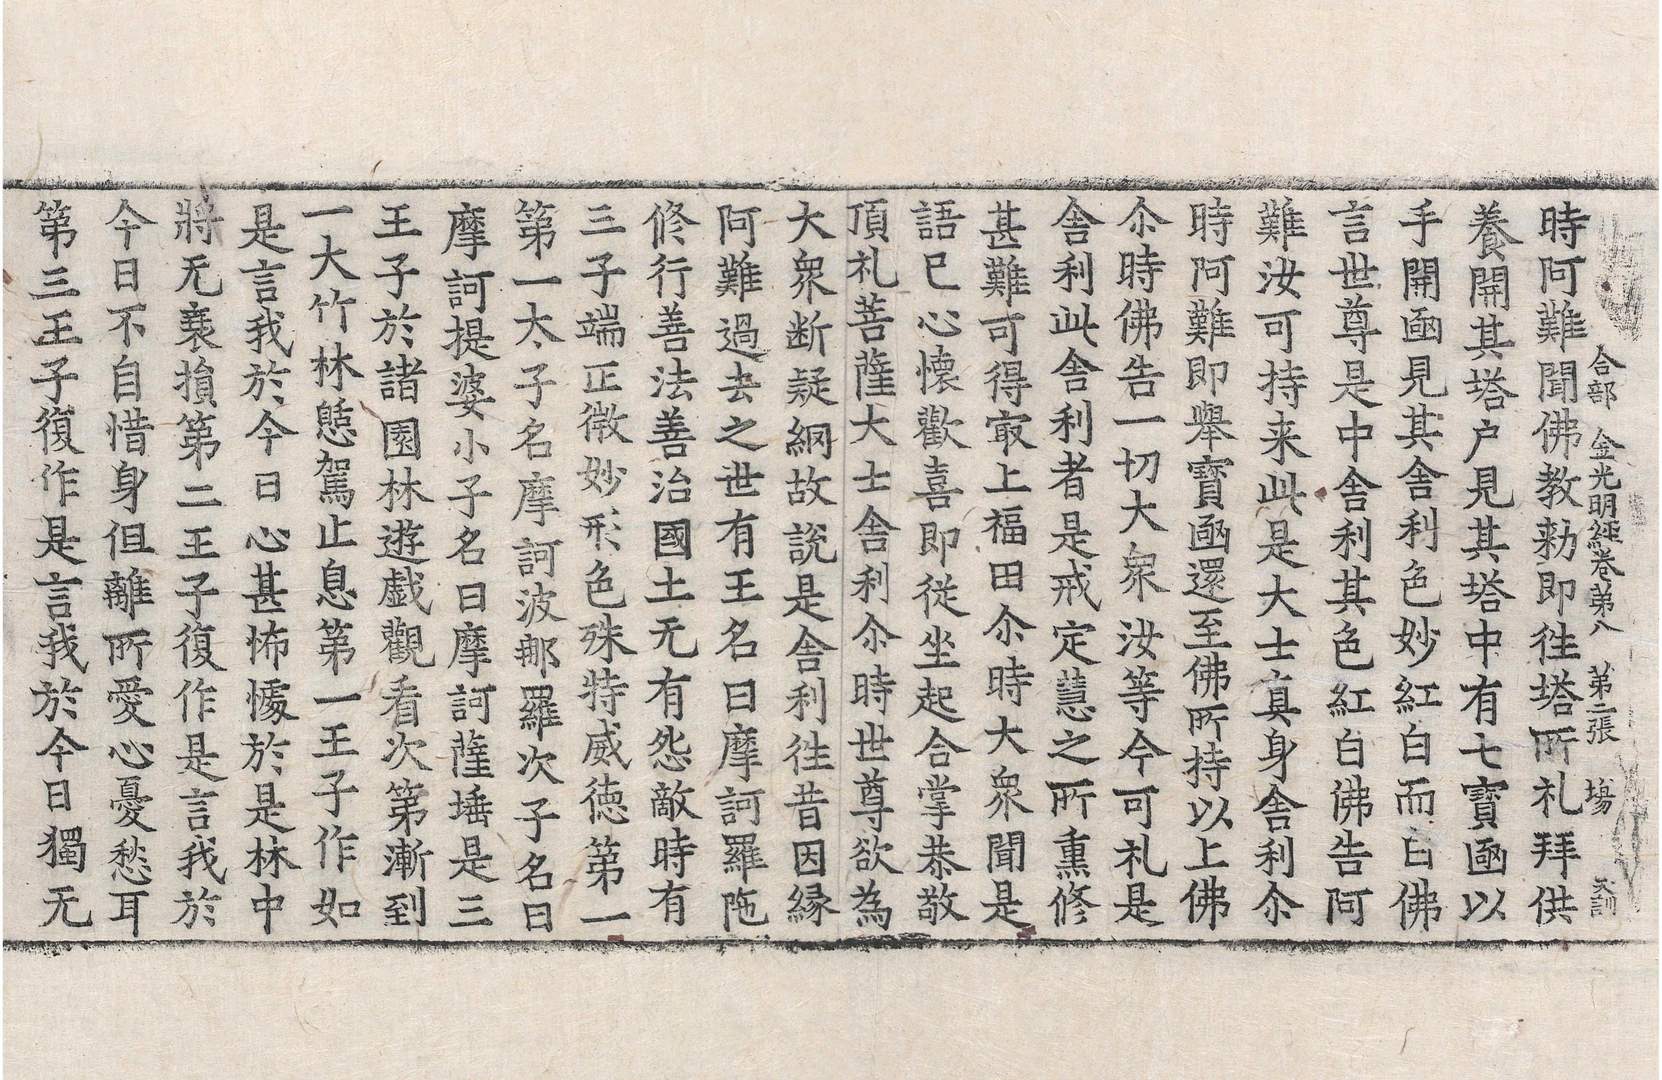 合部 金光明經卷第八 第二張 塲
時阿難聞佛教勑即徃塔所礼拜供
養開其塔户見其塔中有七寶函以
手開函見其舍利色妙紅白而白佛
言世尊是中舍利其色紅白佛告阿
難汝可持来此是大士真身舍利尒
時阿難即舉寶函還至佛所持以上佛
尒時佛告一切大衆汝等今可礼是
舍利此舍利者是戒定慧之所熏修
甚難可得㝡上福田尒時大衆聞是
語已心懐歡喜即從坐起合掌恭敬
頂礼菩薩大士舍利尒時世尊欲為
大衆断疑網故說是舍利徃昔因縁
阿難過去之世有王名曰摩訶羅陁
修行善法善治國土无有怨敵時有
三子端正微妙形色殊特威徳第一
第一太子名摩訶波那羅次子名曰
摩訶提婆小子名曰摩訶薩埵是三
王子於諸園林遊戲觀看次第漸到
一大竹林憩駕止息第一王子作如
是言我於今日心甚怖懅於是林中
將无衰損第二王子復作是言我於
今日不自惜身但離所愛心憂愁耳
第三王子復作是言我於今日獨无